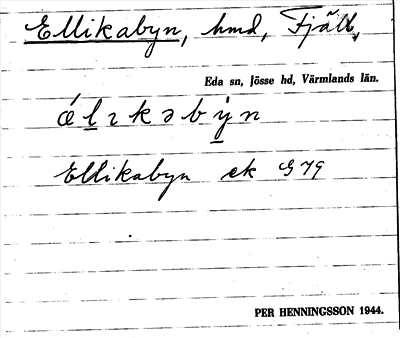 Ellikabyn, hmd, Fjäll,
Eda sn, Jösse hd, Värmlands län.
ǽlıkəbẏn
Ellikabyn ek G 79
PER HENNINGSSON 1944.